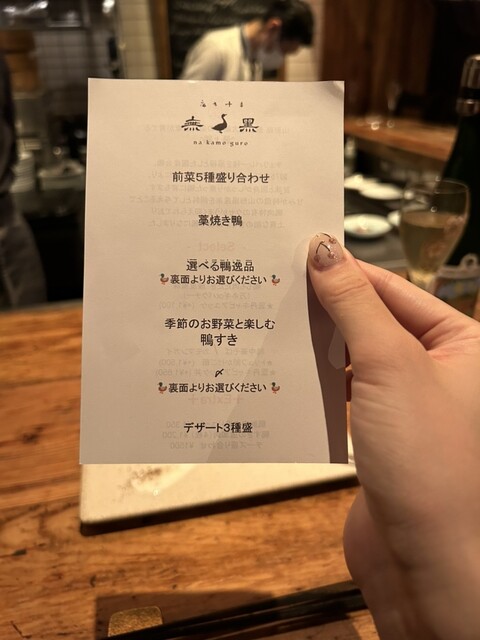 無 黒
na kamo guro
前菜5種盛り合わせ
藁焼き鴨
選べる鴨逸品
裏面よりお選びください
季節のお野菜と楽しむ
鴨すき
〆
裏面よりお選びください
デザート3種盛